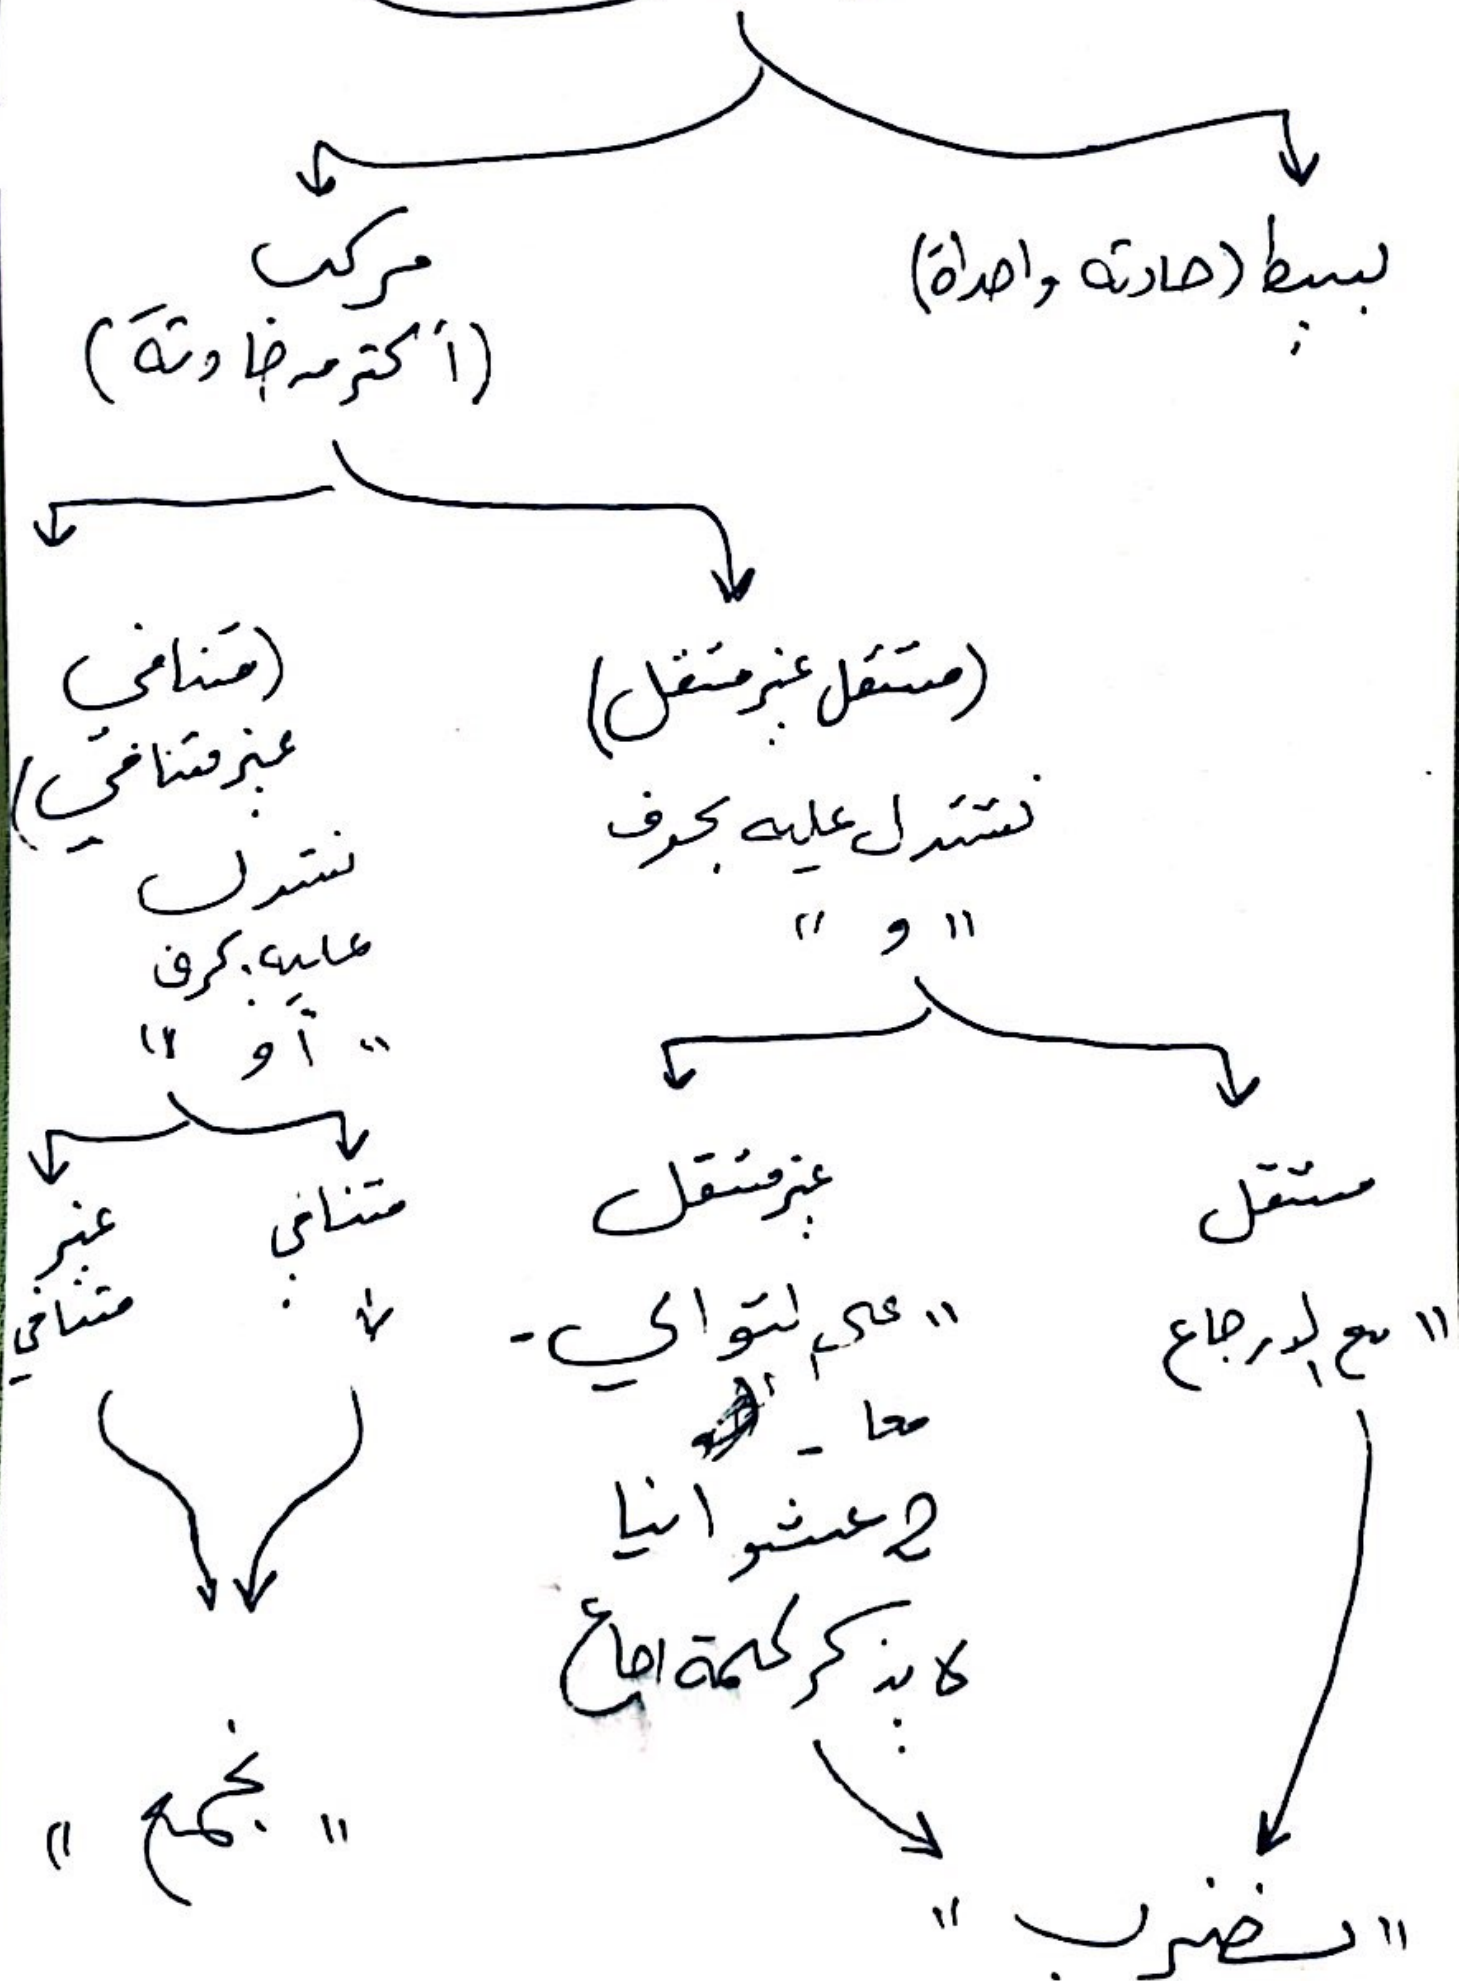 بسيط (حادثه واحداة)
مركب
(أكثر من حادثة)
(مستقل غير مستقل)
نستدل عليه بحرف
" و "
(متنافي
غير متنافي)
نستدل
عليه بحرف
" أو "
مستقل
" مع الارجاع
غير مستقل
" على التوالي -
معا -
2 عشوانيا
لا يذكر كلمة ارجاع
متنافي
غير
متنافي
" نجمع "
" نضرب "